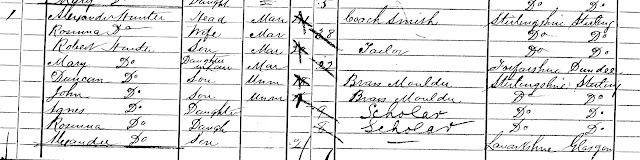 Daught 5 Do Do
1 Alexander Hunter Head Mar Coach Smith Stirlingshire Stirling
Rosinna Do Wife Mar 28 Do Do
Robert Hunter Son Mar Tailor Do Do
Mary Do Daughter in Law Mar 22 Forfarshire Dundee
Duncan Do Son Unm Brass Moulder Stirlingshire Stirling
John Do Son Unm Brass Moulder Do Do
Agnes Do Daughter 9 Scholar Do Do
Rosinna Do Daugh 8 Scholar Do Do
Alexander Do Son 2 Lanarkshire Glasgow